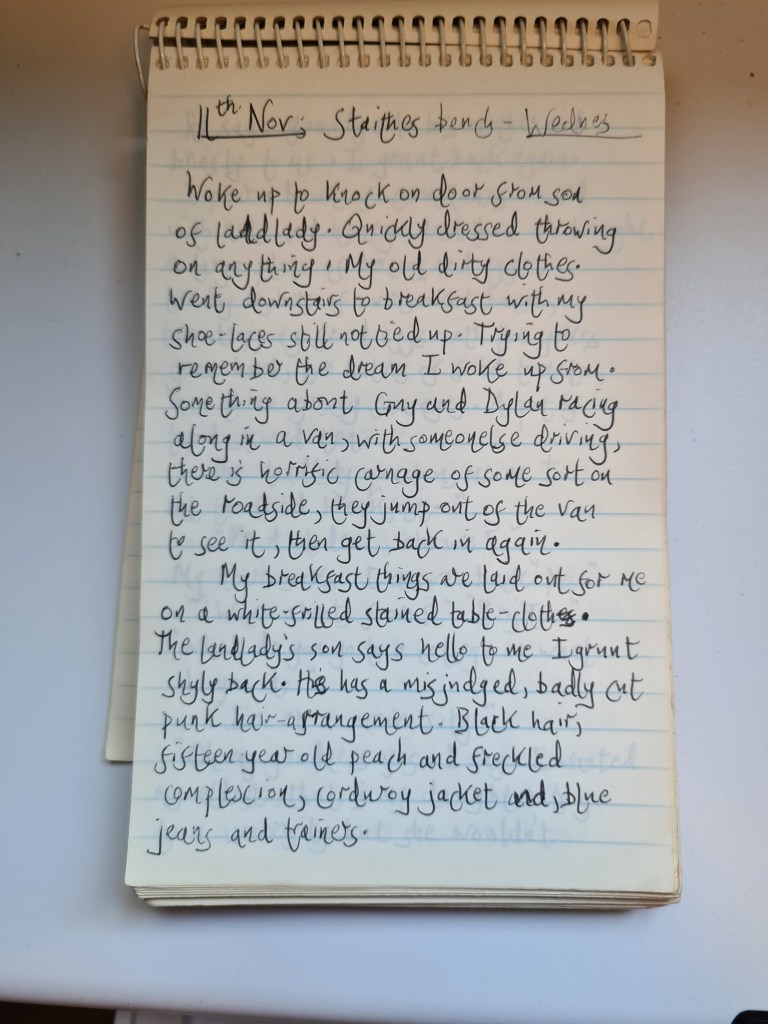 11th Nov; Staithes bench - Wednes
Woke up to knock on door from son
of landlady. Quickly dressed throwing
on anything, My old dirty clothes.
Went downstairs to breakfast with my
shoe-laces still not tied up. Trying to
remember the dream I woke up from.
Something about Guy and Dylan racing
along in a van, with someonelse driving,
there is horrific carnage of some sort on
the roadside, they jump out of the van
to see it, then get back in again.
My breakfast things are laid out for me
on a white-frilled stained table-cloth.
The landlady's son says hello to me I grunt
shyly back. He has a misjudged, badly cut
punk hair-arrangement. Black hair,
fifteen year old peach and freckled
complexion, corduroy jacket and, blue
jeans and trainers.